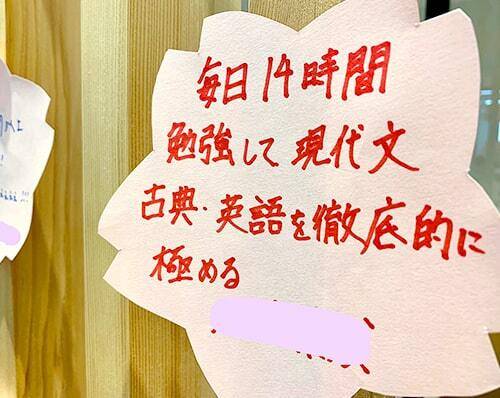 毎日14時間
勉強して現代文
古典・英語を徹底的に
極める